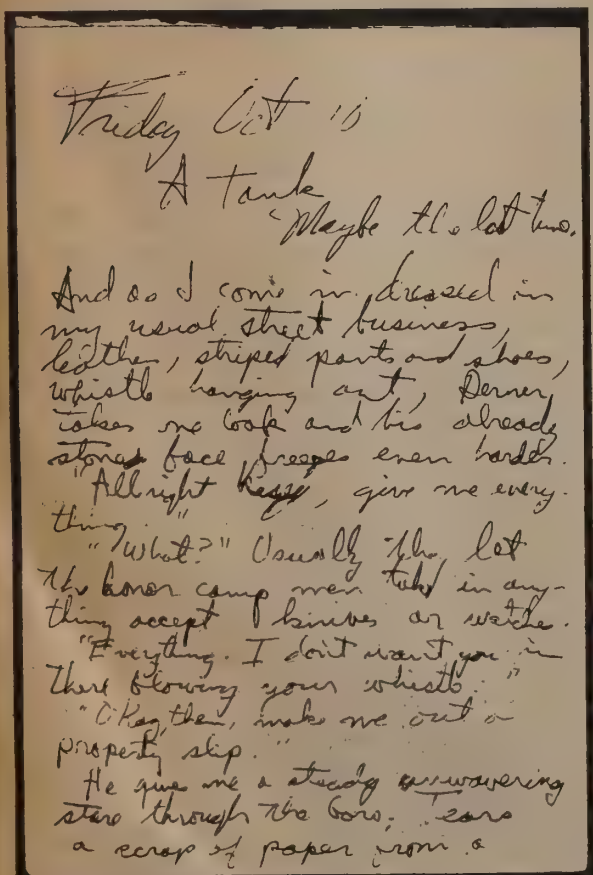 Friday Oct 10
A Tank
"Maybe the last time.
And as I come in dressed in
my usual street business,
leather, striped pants and shoes,
whistle hanging out, Derner
takes one look and his already
stoned face freezes even harder.
"Allright Kesey, give me every-
thing."
"What?" Usually they let
the honor camp men take in any-
thing accept knives or watche.
"Everything. I don't want you in
there blowing your whistle."
"OKay, then, make me out a
property slip."
He gives me a steady unwavering
stare through the bars. Tears
a scrap of paper from a